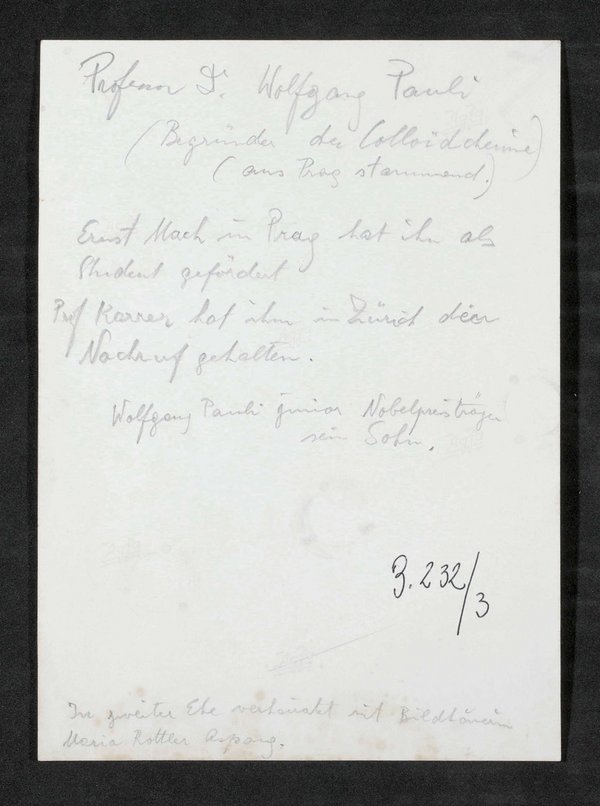 Professor Dr. Wolfgang Pauli
(Begründer der Colloidchemie)
(aus Prag stammend.)
Ernst Mach in Prag hat ihn als
Student gefördert
Prof Karrer hat ihm in Zürich den
Nachruf gehalten.
Wolfgang Pauli junior Nobelpreisträger
sein Sohn.
3.232/3
In zweiter Ehe verheiratet mit Bildhauerin
Maria Rottler